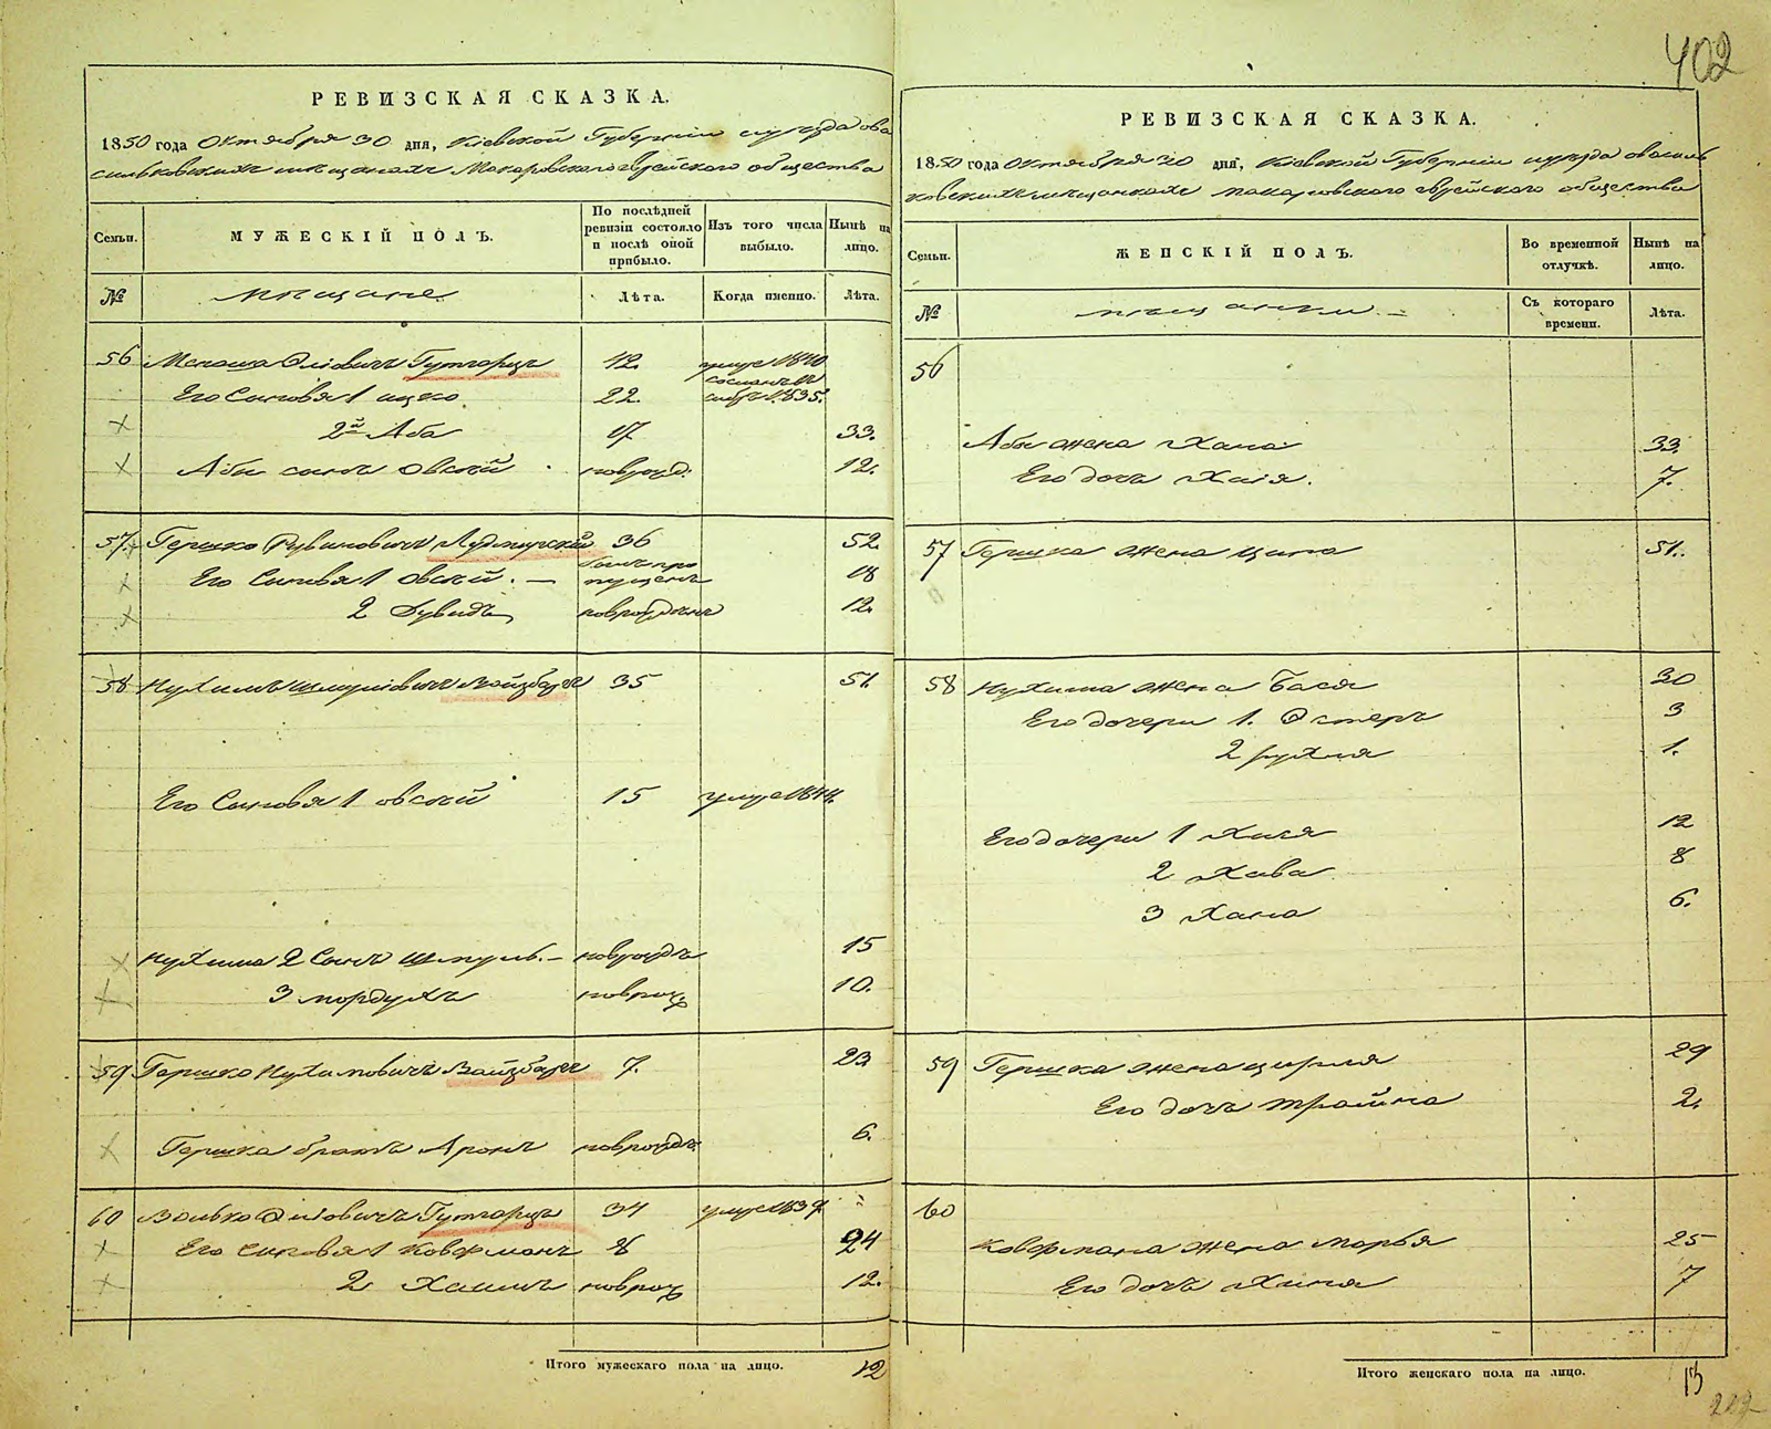 402
РЕВИЗСКАЯ СКАЗКА.
1850 года Октября 30 дня, Кіевской Губерніи уѣзда ова
сильковскихъ мѣщанахъ Макаровскаго еврейскаго общества
Семьи.
МУЖЕСКІЙ ПОЛЪ.
По послѣдней ревизіи состояло и послѣ оной прибыло.
Изъ того числа выбыло.
Нынѣ на лицо.
№
мѣщане
Лѣта.
Когда именно.
Лѣта.
56 Меноша Оліовичъ Гутгарцъ 42. умре 1840
Его Сыновья 1 ицко 22. 1835.
2й Аба 17 33.
Абы сынъ овсѣй новрожд. 12.
57. Гершко Рувиновичъ 36 52.
Его Сыновья 1 Овсѣй. — былъ про пущенъ 18
2 Дувидъ новрожденъ 12.
58 Нухимъ Шмуліовичъ Вайзбергъ 35 51.
Его Сыновья 1 овсѣй 15 умре 1844.
Нухима 2 Сынъ Шмуль. — новрождъ 15
3 мордухъ новрож 10.
59 Гершко Нухимовичъ Вайзбергъ 7. 23
Гершка братъ Аронъ новрождъ 6.
60 Волько Оліовичъ Гутгарцъ 34 умре 1839.
Его сыновья 1 Ковфманъ 8 24
2 Хаимъ новрож 12.
Итого мужескаго пола на лицо. 12
РЕВИЗСКАЯ СКАЗКА.
1850 года Октября 30 дня, Кіевской Губерніи уѣзда овасиль
ковскихъ мѣщанкахъ Макаровскаго еврейскаго общества
Семьи.
ЖЕНСКІЙ ПОЛЪ.
Во временной отлучкѣ.
Нынѣ на лицо.
№
мѣщанки —
Съ котораго времени.
Лѣта.
56
Абы жена Хана 33.
Его дочь Хаія. 7.
57 Гершка жена Ципа 51.
58 Нухима жена Бася 30
Его дочери 1. Эстеръ 3
2 рухля 1.
Его дочери 1 Хася 12
2 Хава 8
3 Хана 6.
59 Гершка жена цирля 29
Его дочь трайна 2.
60
Ковфмана жена марья 25
Его дочь Хиня 7
Итого женскаго пола на лицо. 13